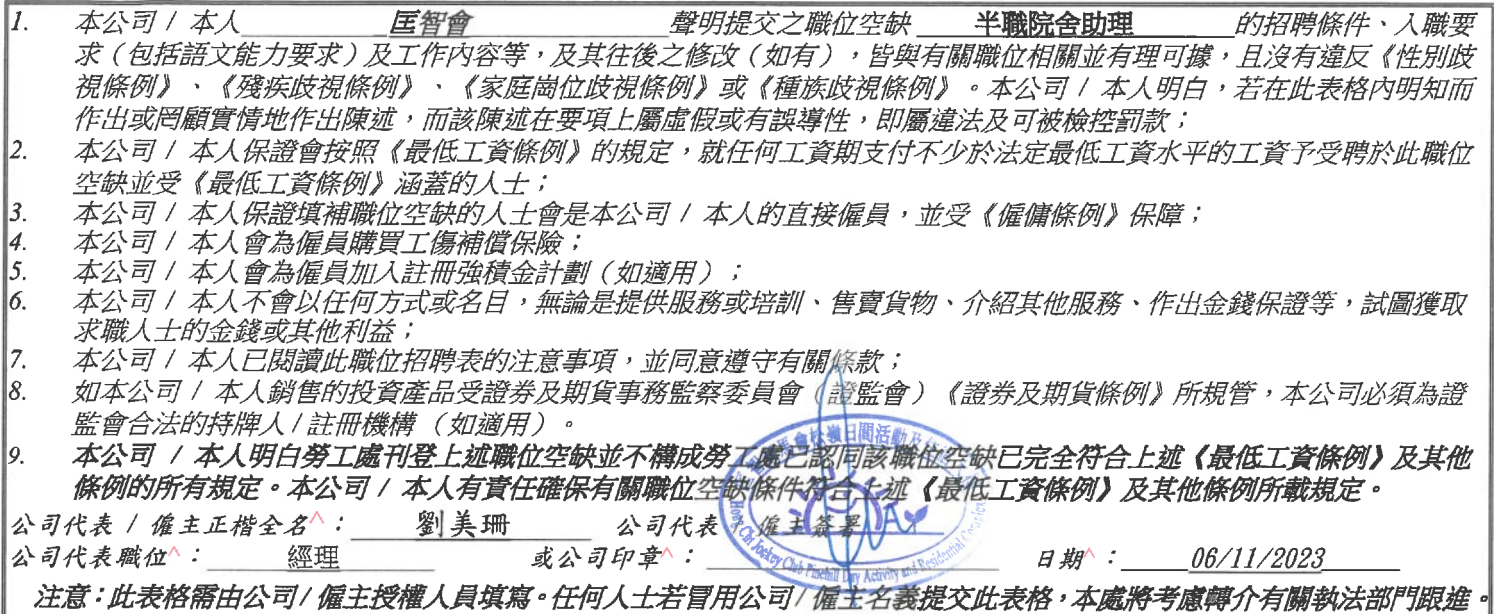 1. 本公司 / 本人 匡智會 聲明提交之職位空缺 半職院舍助理 的招聘條件、入職要
求（包括語文能力要求）及工作內容等，及其往後之修改（如有），皆與有關職位相關並有理可據，且沒有違反《性別歧
視條例》、《殘疾歧視條例》、《家庭崗位歧視條例》或《種族歧視條例》。本公司 / 本人明白，若在此表格內明知而
作出或罔顧實情地作出陳述，而該陳述在要項上屬虛假或有誤導性，即屬違法及可被檢控罰款；
2. 本公司 / 本人保證會按照《最低工資條例》的規定，就任何工資期支付不少於法定最低工資水平的工資予受聘於此職位
空缺並受《最低工資條例》涵蓋的人士；
3. 本公司 / 本人保證填補職位空缺的人士會是本公司 / 本人的直接僱員，並受《僱傭條例》保障；
4. 本公司 / 本人會為僱員購買工傷補償保險；
5. 本公司 / 本人會為僱員加入註冊強積金計劃（如適用）；
6. 本公司 / 本人不會以任何方式或名目，無論是提供服務或培訓、售賣貨物、介紹其他服務、作出金錢保證等，試圖獲取
求職人士的金錢或其他利益；
7. 本公司 / 本人已閱讀此職位招聘表的注意事項，並同意遵守有關條款；
8. 如本公司 / 本人銷售的投資產品受證券及期貨事務監察委員會（證監會）《證券及期貨條例》所規管，本公司必須為證
監會合法的持牌人 / 註冊機構 （如適用）。
9. 本公司 / 本人明白勞工處刊登上述職位空缺並不構成勞工處已認同該職位空缺已完全符合上述《最低工資條例》及其他
條例的所有規定。本公司 / 本人有責任確保有關職位空缺條件符合上述《最低工資條例》及其他條例所載規定。
公司代表 / 僱主正楷全名^： 劉美珊 公司代表 / 僱主簽署
公司代表職位^： 經理 或公司印章^： 日期^： 06/11/2023
Hong Chi Jockey Club Pinehill Day Activity and Residential Complex
注意：此表格需由公司 / 僱主授權人員填寫。任何人士若冒用公司 / 僱主名義提交此表格，本處將考慮轉介有關執法部門跟進。